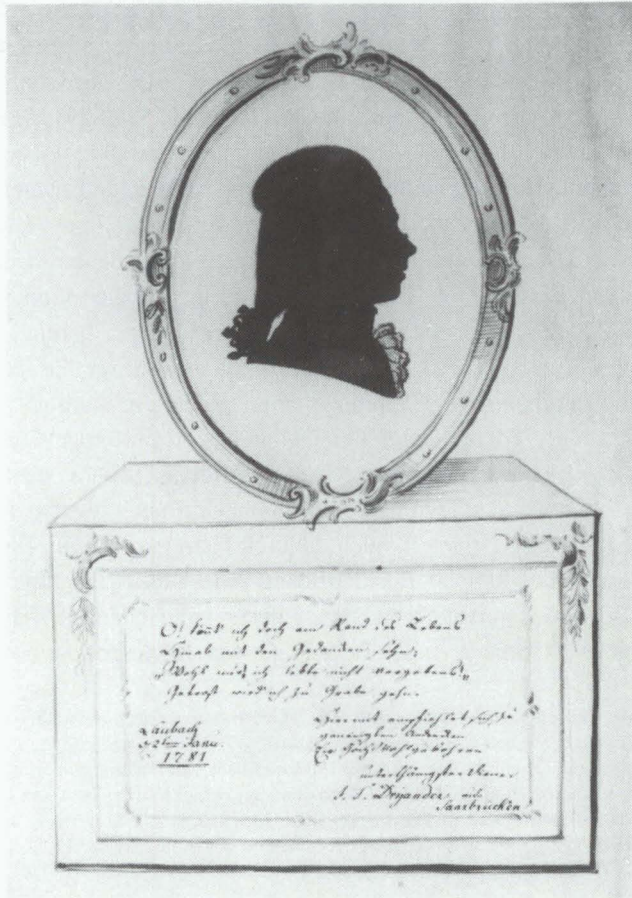 O! könt ich doch am Rand des Lebens
Hinab mit den Gedanken sehn,
„Wohl mir, ich lebte nicht vergebens!„
Getrost wird ich zu Grabe gehn.
Laubach
d 2ten Janu.
1781
Hiermit empfiehlet sich zu
geneigtem Andenken
Ew. HochWohlgebohren
unterthänigster Diener
J. F. Dryander aus
Saarbrücken